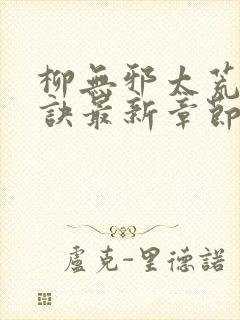 柳無邪太荒
訣最新章節
盧克-里德諾